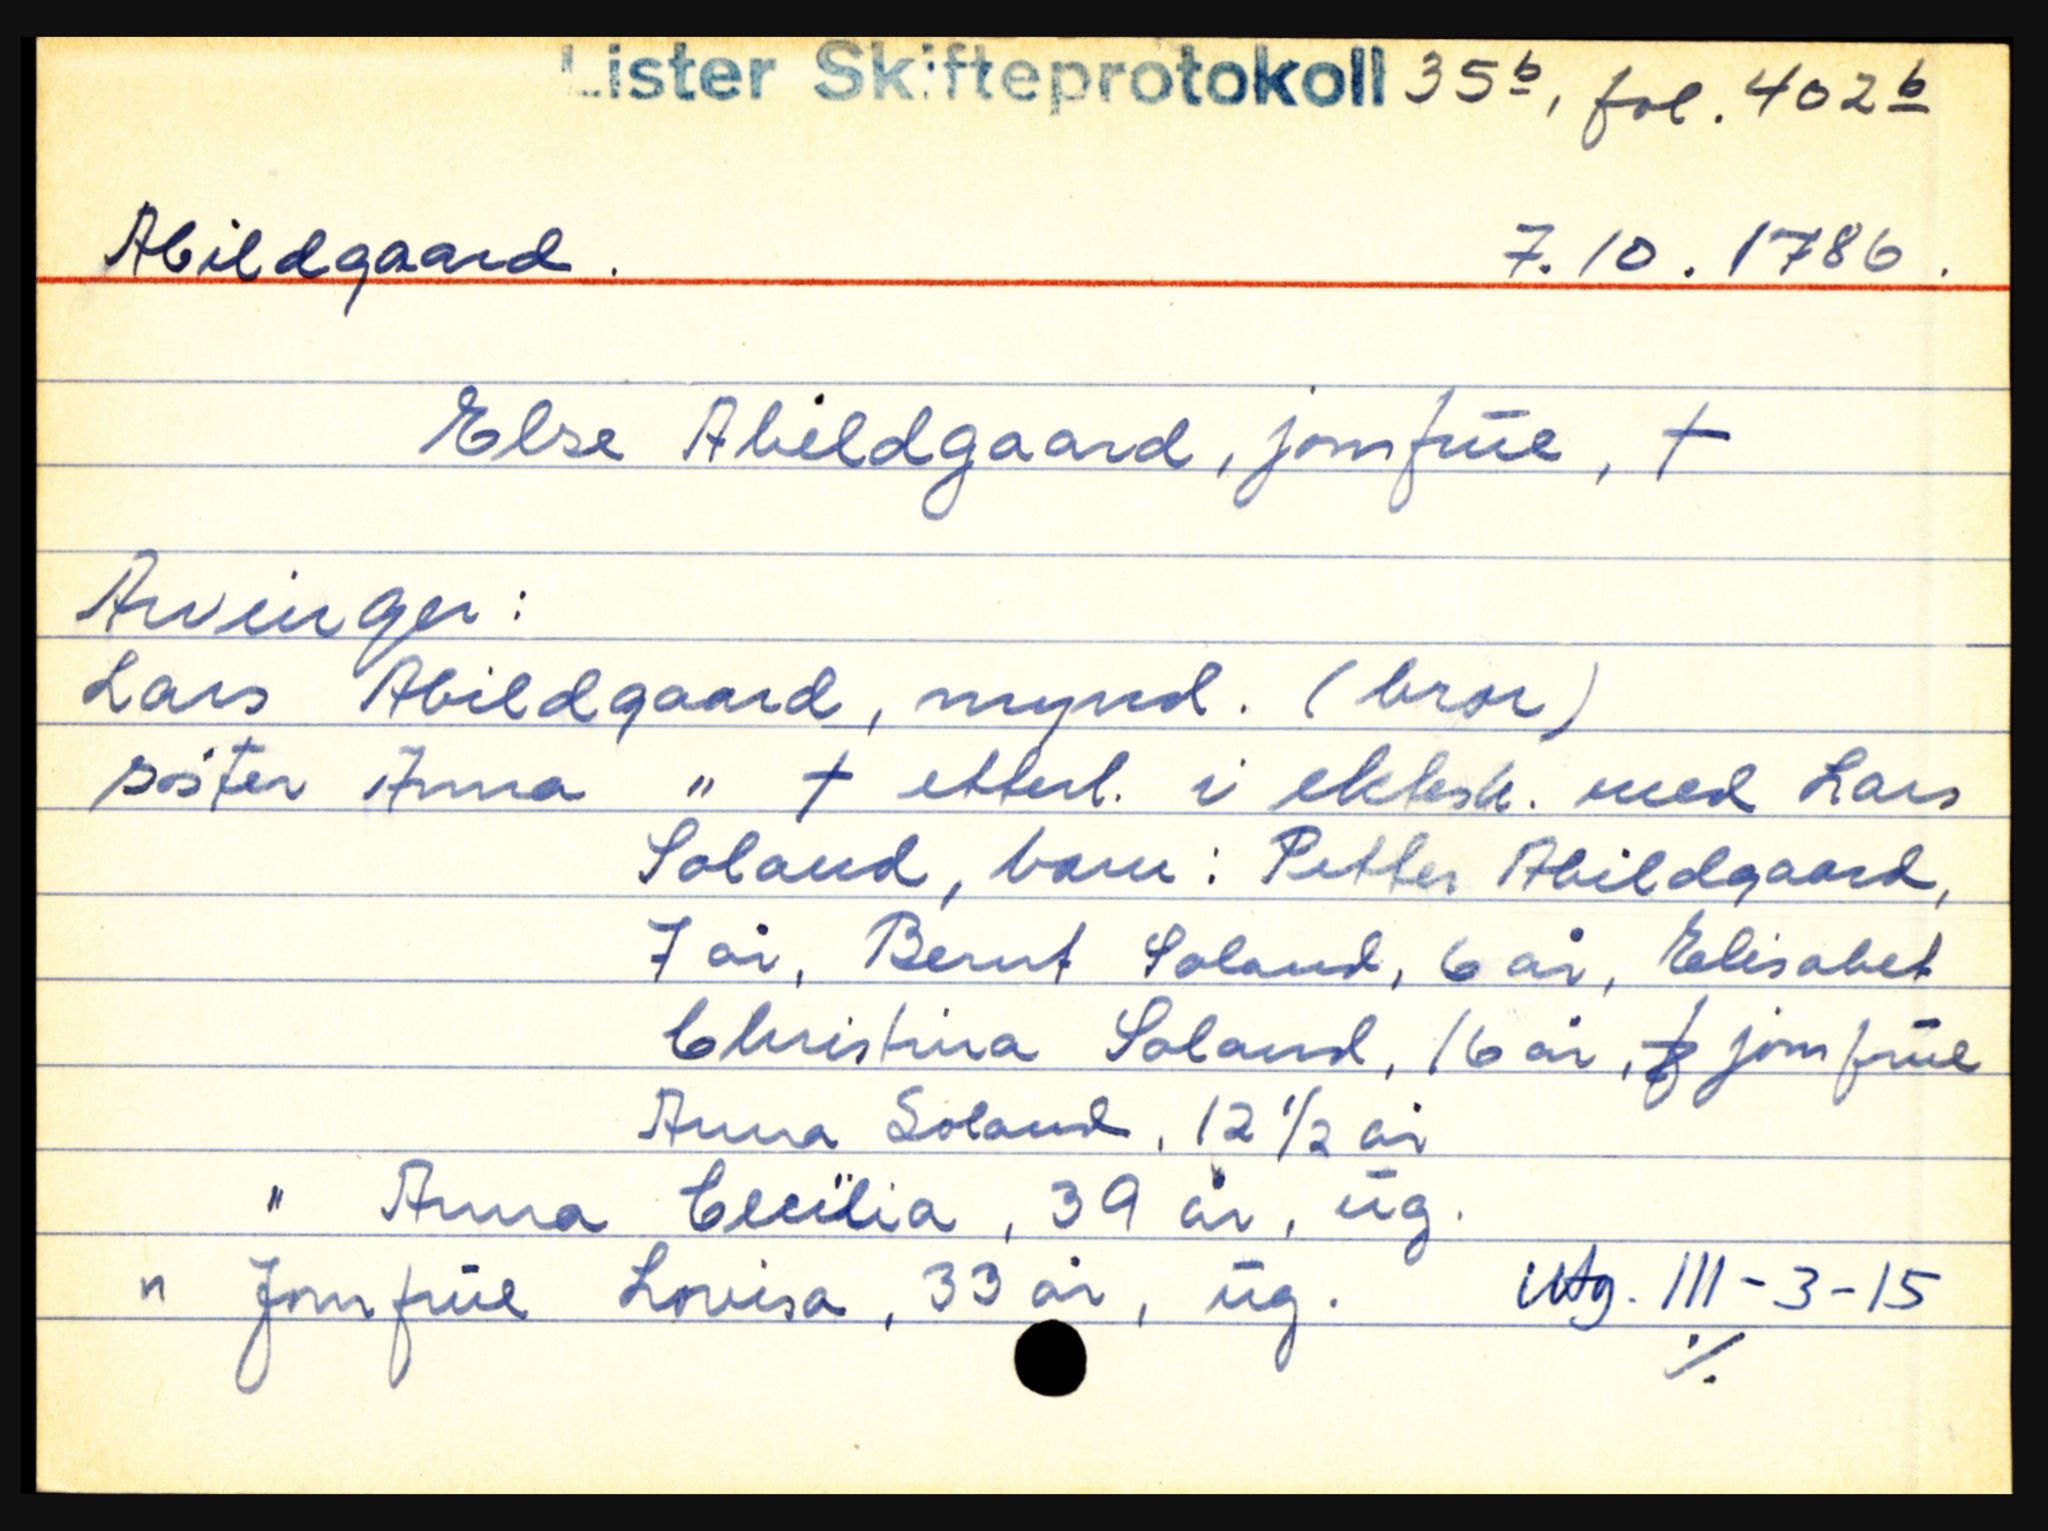 Lister Skifteprotokoll 35b, fol. 402b
Abildgaard. 7.10.1786.
Else Abildgaard, jomfrue, †
Arvinger:
Lars Abildgaard, mynd. (bror)
söster Anna " † etterl. i ektesk. med Lars
Soland, barn: Petter Abildgaard,
7 år, Bernt Soland, 6 år, Elisabet
Christina Soland, 16 år, jomfrue
Anna Soland, 12 1/2 år
" Anna Cecilia, 39 år, ug.
" Jomfrue Lovisa, 33 år, ug. Utg. III-3-15
./.